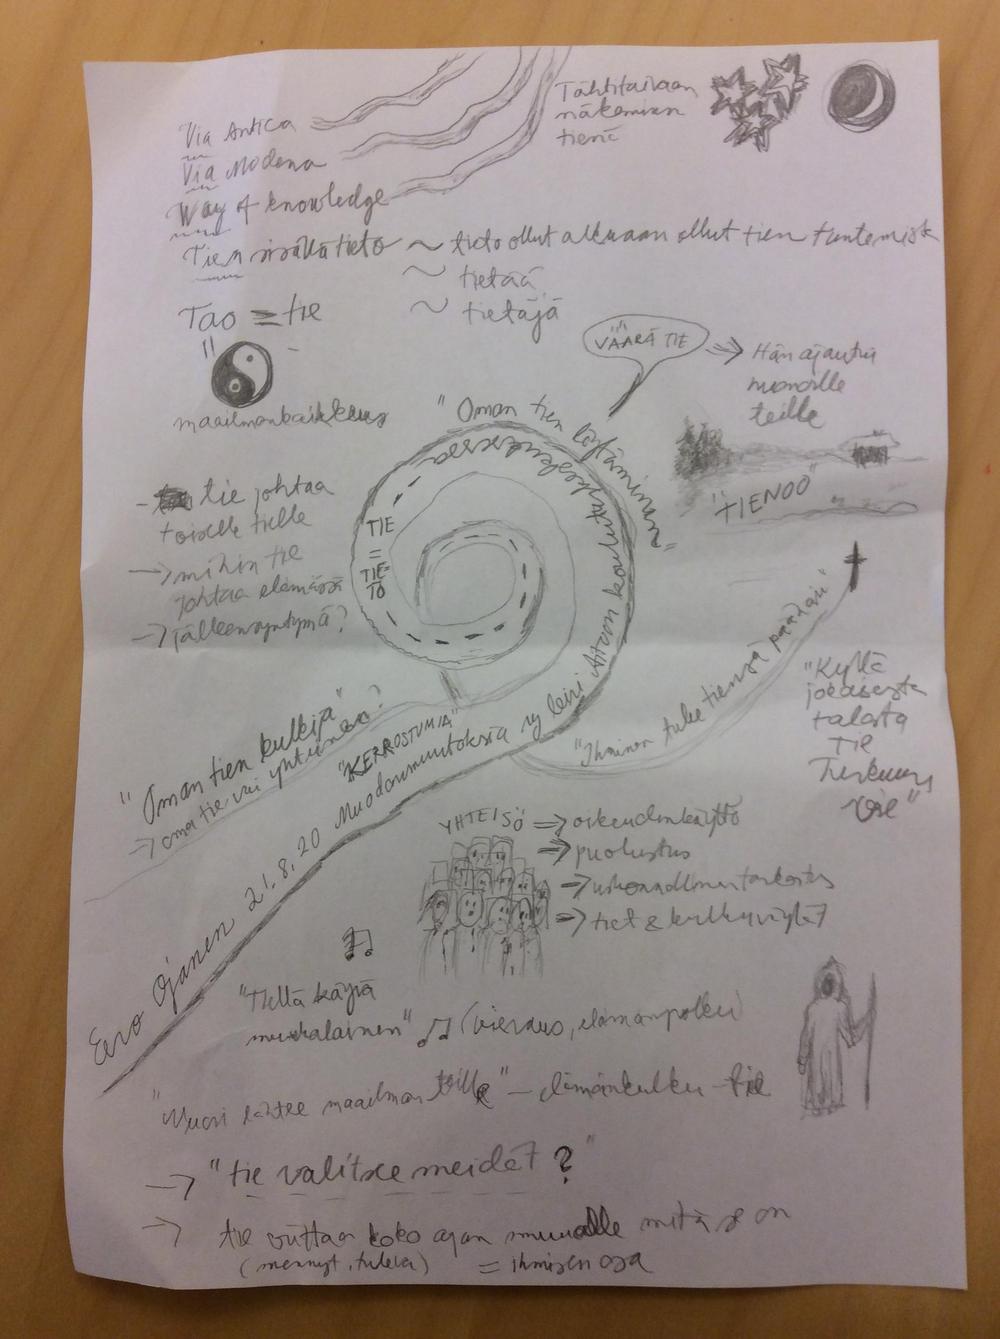 Tähtitaivaan
näkeminen
tienä
Via Antica
Via Moderna
Way of knowledge
Tien sisältä tieto ~ tieto ollut alkuaan ollut tien tuntemista
~ tietää
~ tietäjä
Tao = tie
maailmankaikkeus
"VÄÄRÄ TIE" => Hän ajautui
monelle
teille
"TIENOO"
"Oman tien löytäminen"
TIE
=
TIE-
TO
- tie johtaa
toiselle tielle
-> mihin tie
johtaa elämässä
-> jälleensyntymä?
"Oman tien kulkija"
-> oma tie vai yhteinen?
"KERROSTUMIA"
Eero Ojanen 21.8.20 Muodonmuutoksia ry leiri koulutuskeskuksessa
"Ihminen tulee tiensä päähän"
"Kyllä
jokaisesta
talosta
tie
Turkuun
vie"
YHTEISÖ => oikeudenkäyttö
=> puolustus
=> uskonnollinen tarkoitus
=> tiet & kulkuväylät
"Tieltä käyvä
matkalainen" (vieraus, elämänpolku)
"Nuori lähtee maailman teille" - elämänkulku - tie
-> "tie valitsee meidät?"
-> tie viittaa koko ajan muualle mitä se on
(mennyt, tuleva) = ihmisen osa